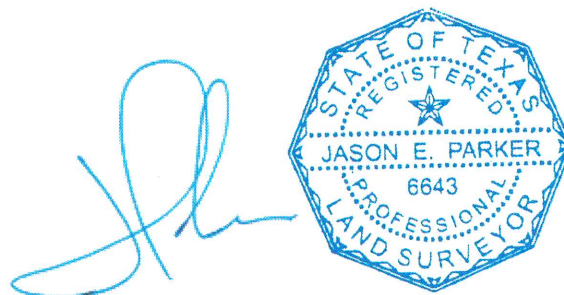 STATE OF TEXAS
REGISTERED
JASON E. PARKER
6643
PROFESSIONAL
LAND SURVEYOR